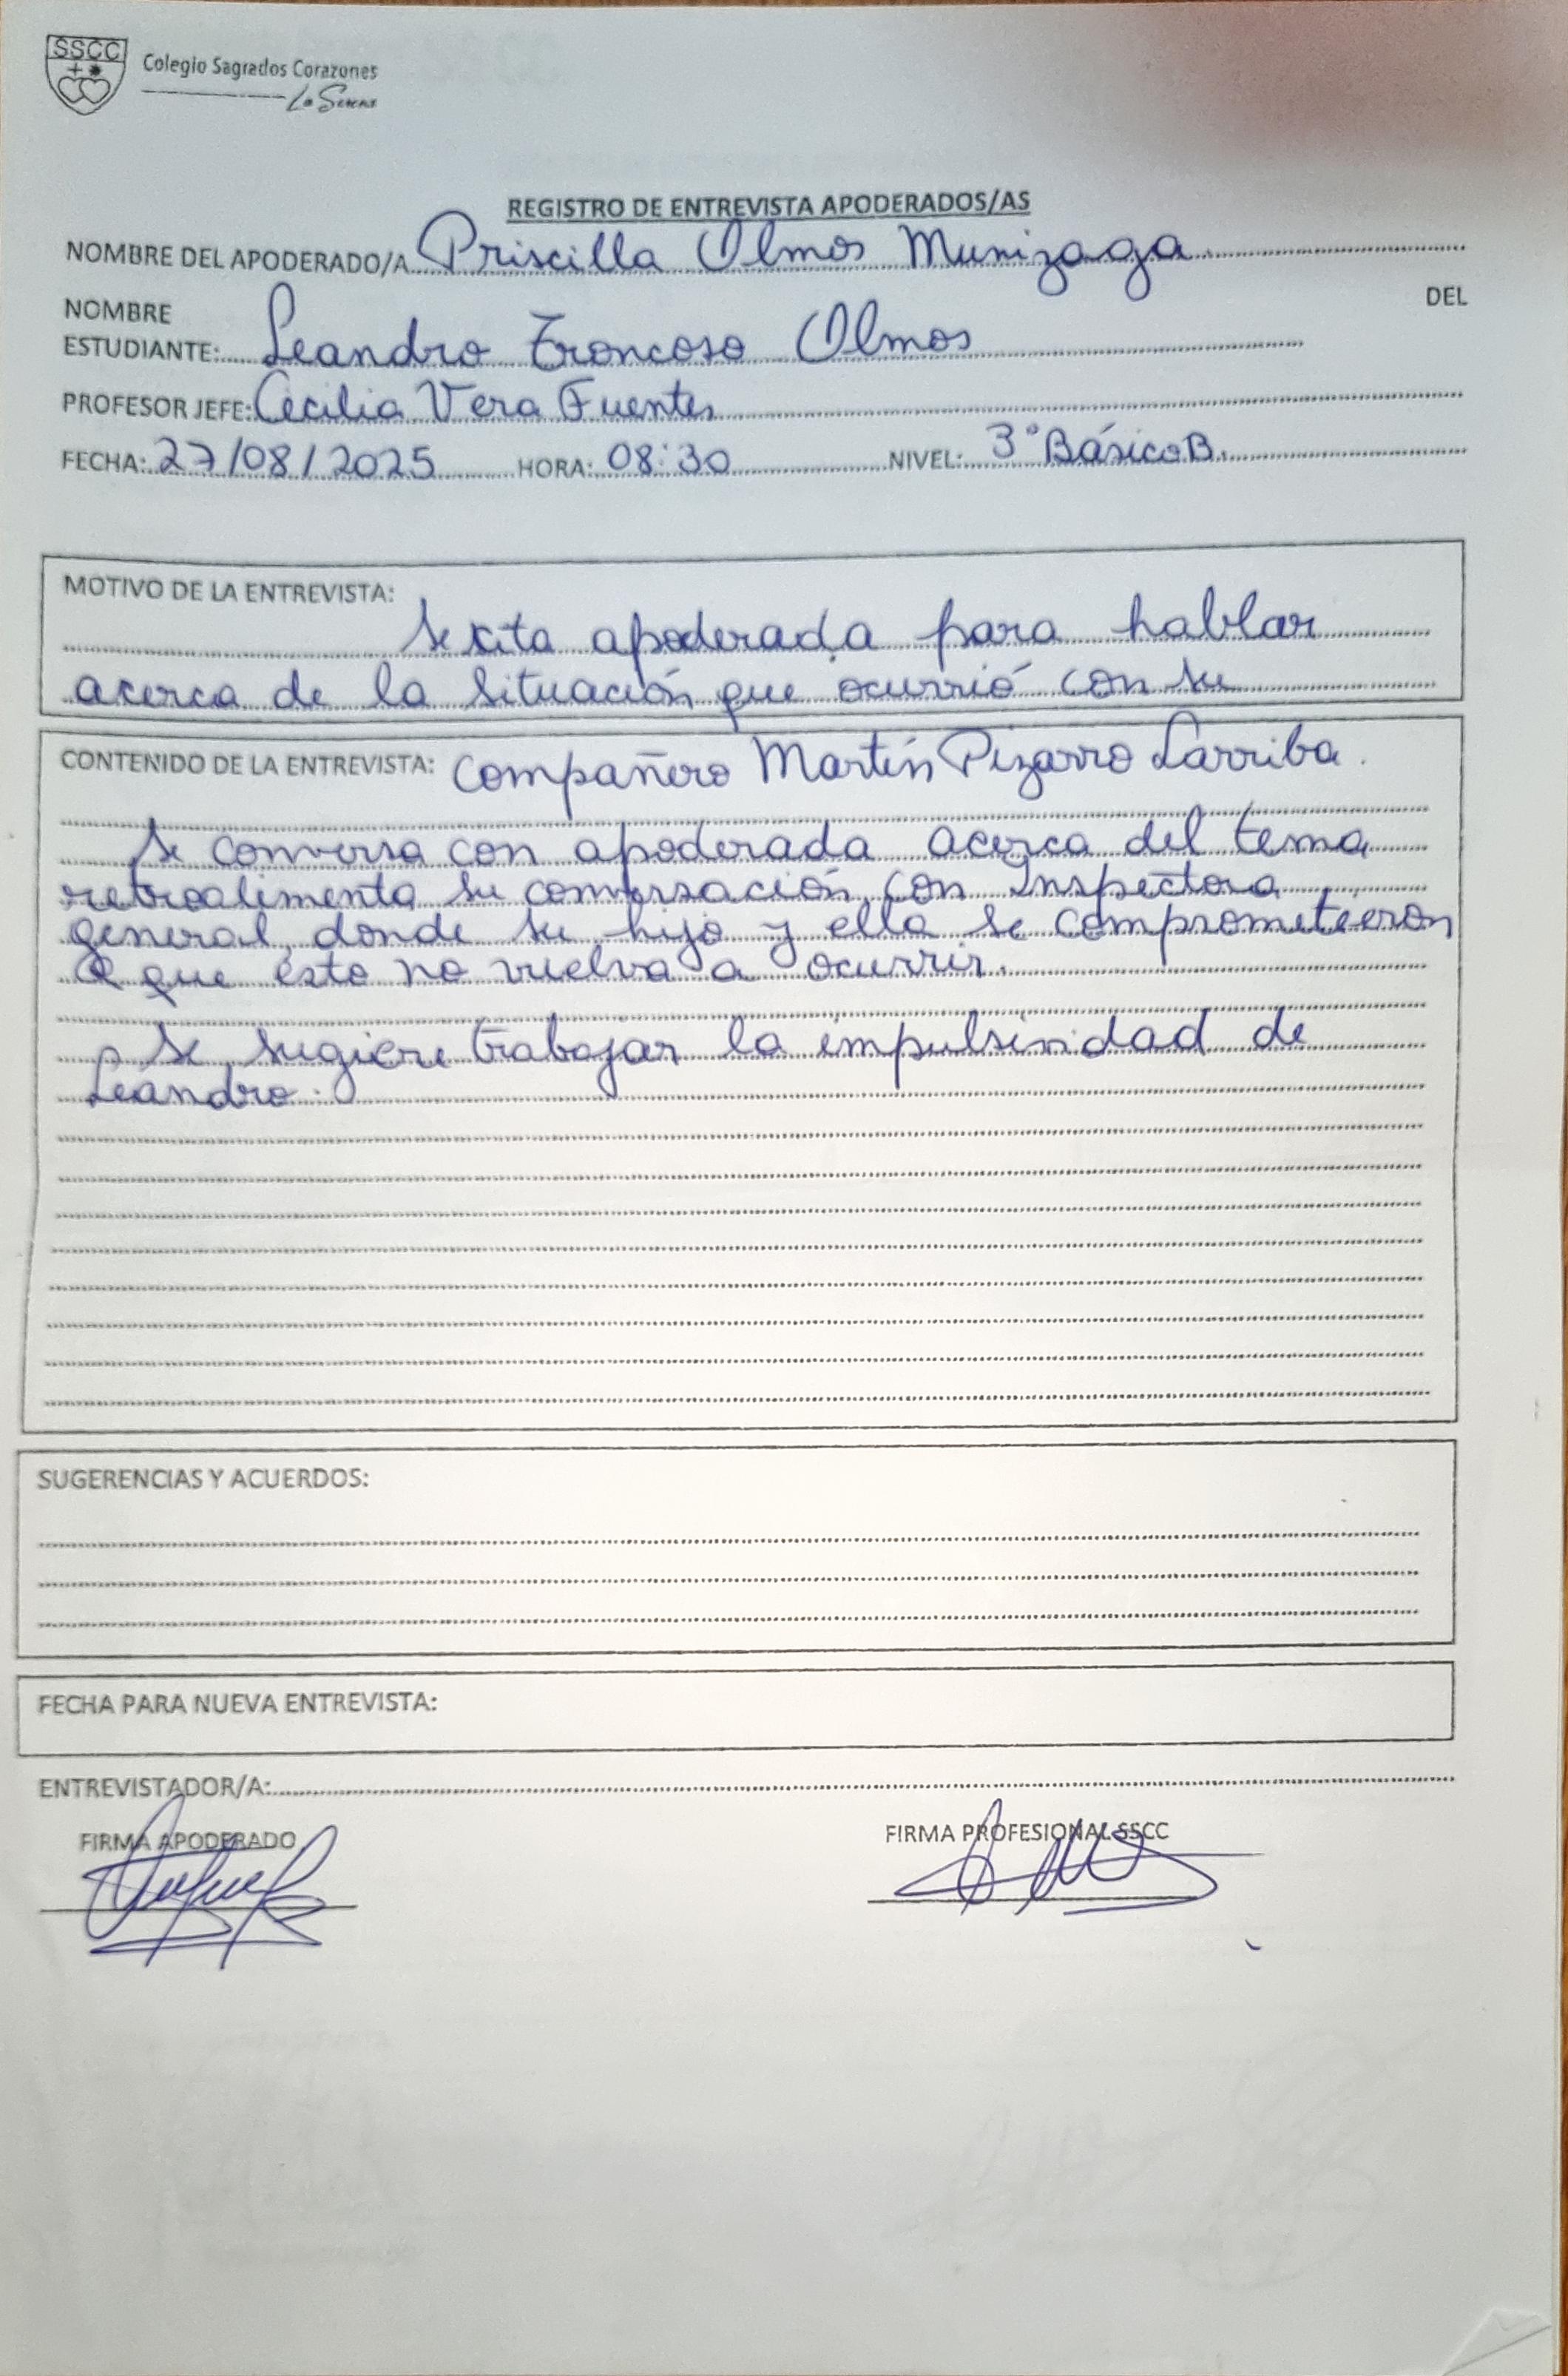 SSCC
Colegio Sagrados Corazones
La Serena
REGISTRO DE ENTREVISTA APODERADOS/AS
NOMBRE DEL APODERADO/A Priscilla Olmos Munizaga
NOMBRE DEL
ESTUDIANTE: Leandro Troncoso Olmos
PROFESOR JEFE: Cecilia Vera Fuentes
FECHA: 27/08/2025 HORA: 08:30 NIVEL: 3° Básico B.
MOTIVO DE LA ENTREVISTA:
Se cita apoderada para hablar
acerca de la situación que ocurrió con su
CONTENIDO DE LA ENTREVISTA: compañero Martín Pizarro Larriba.
Se conversa con apoderada acerca del tema
retroalimenta su conversación con Inspectora
general, donde su hijo y ella se comprometieron
a que esto no vuelva a ocurrir.
Se sugiere trabajar la impulsividad de
Leandro.
SUGERENCIAS Y ACUERDOS:
FECHA PARA NUEVA ENTREVISTA:
ENTREVISTADOR/A:
FIRMA APODERADO FIRMA PROFESIONAL SSCC